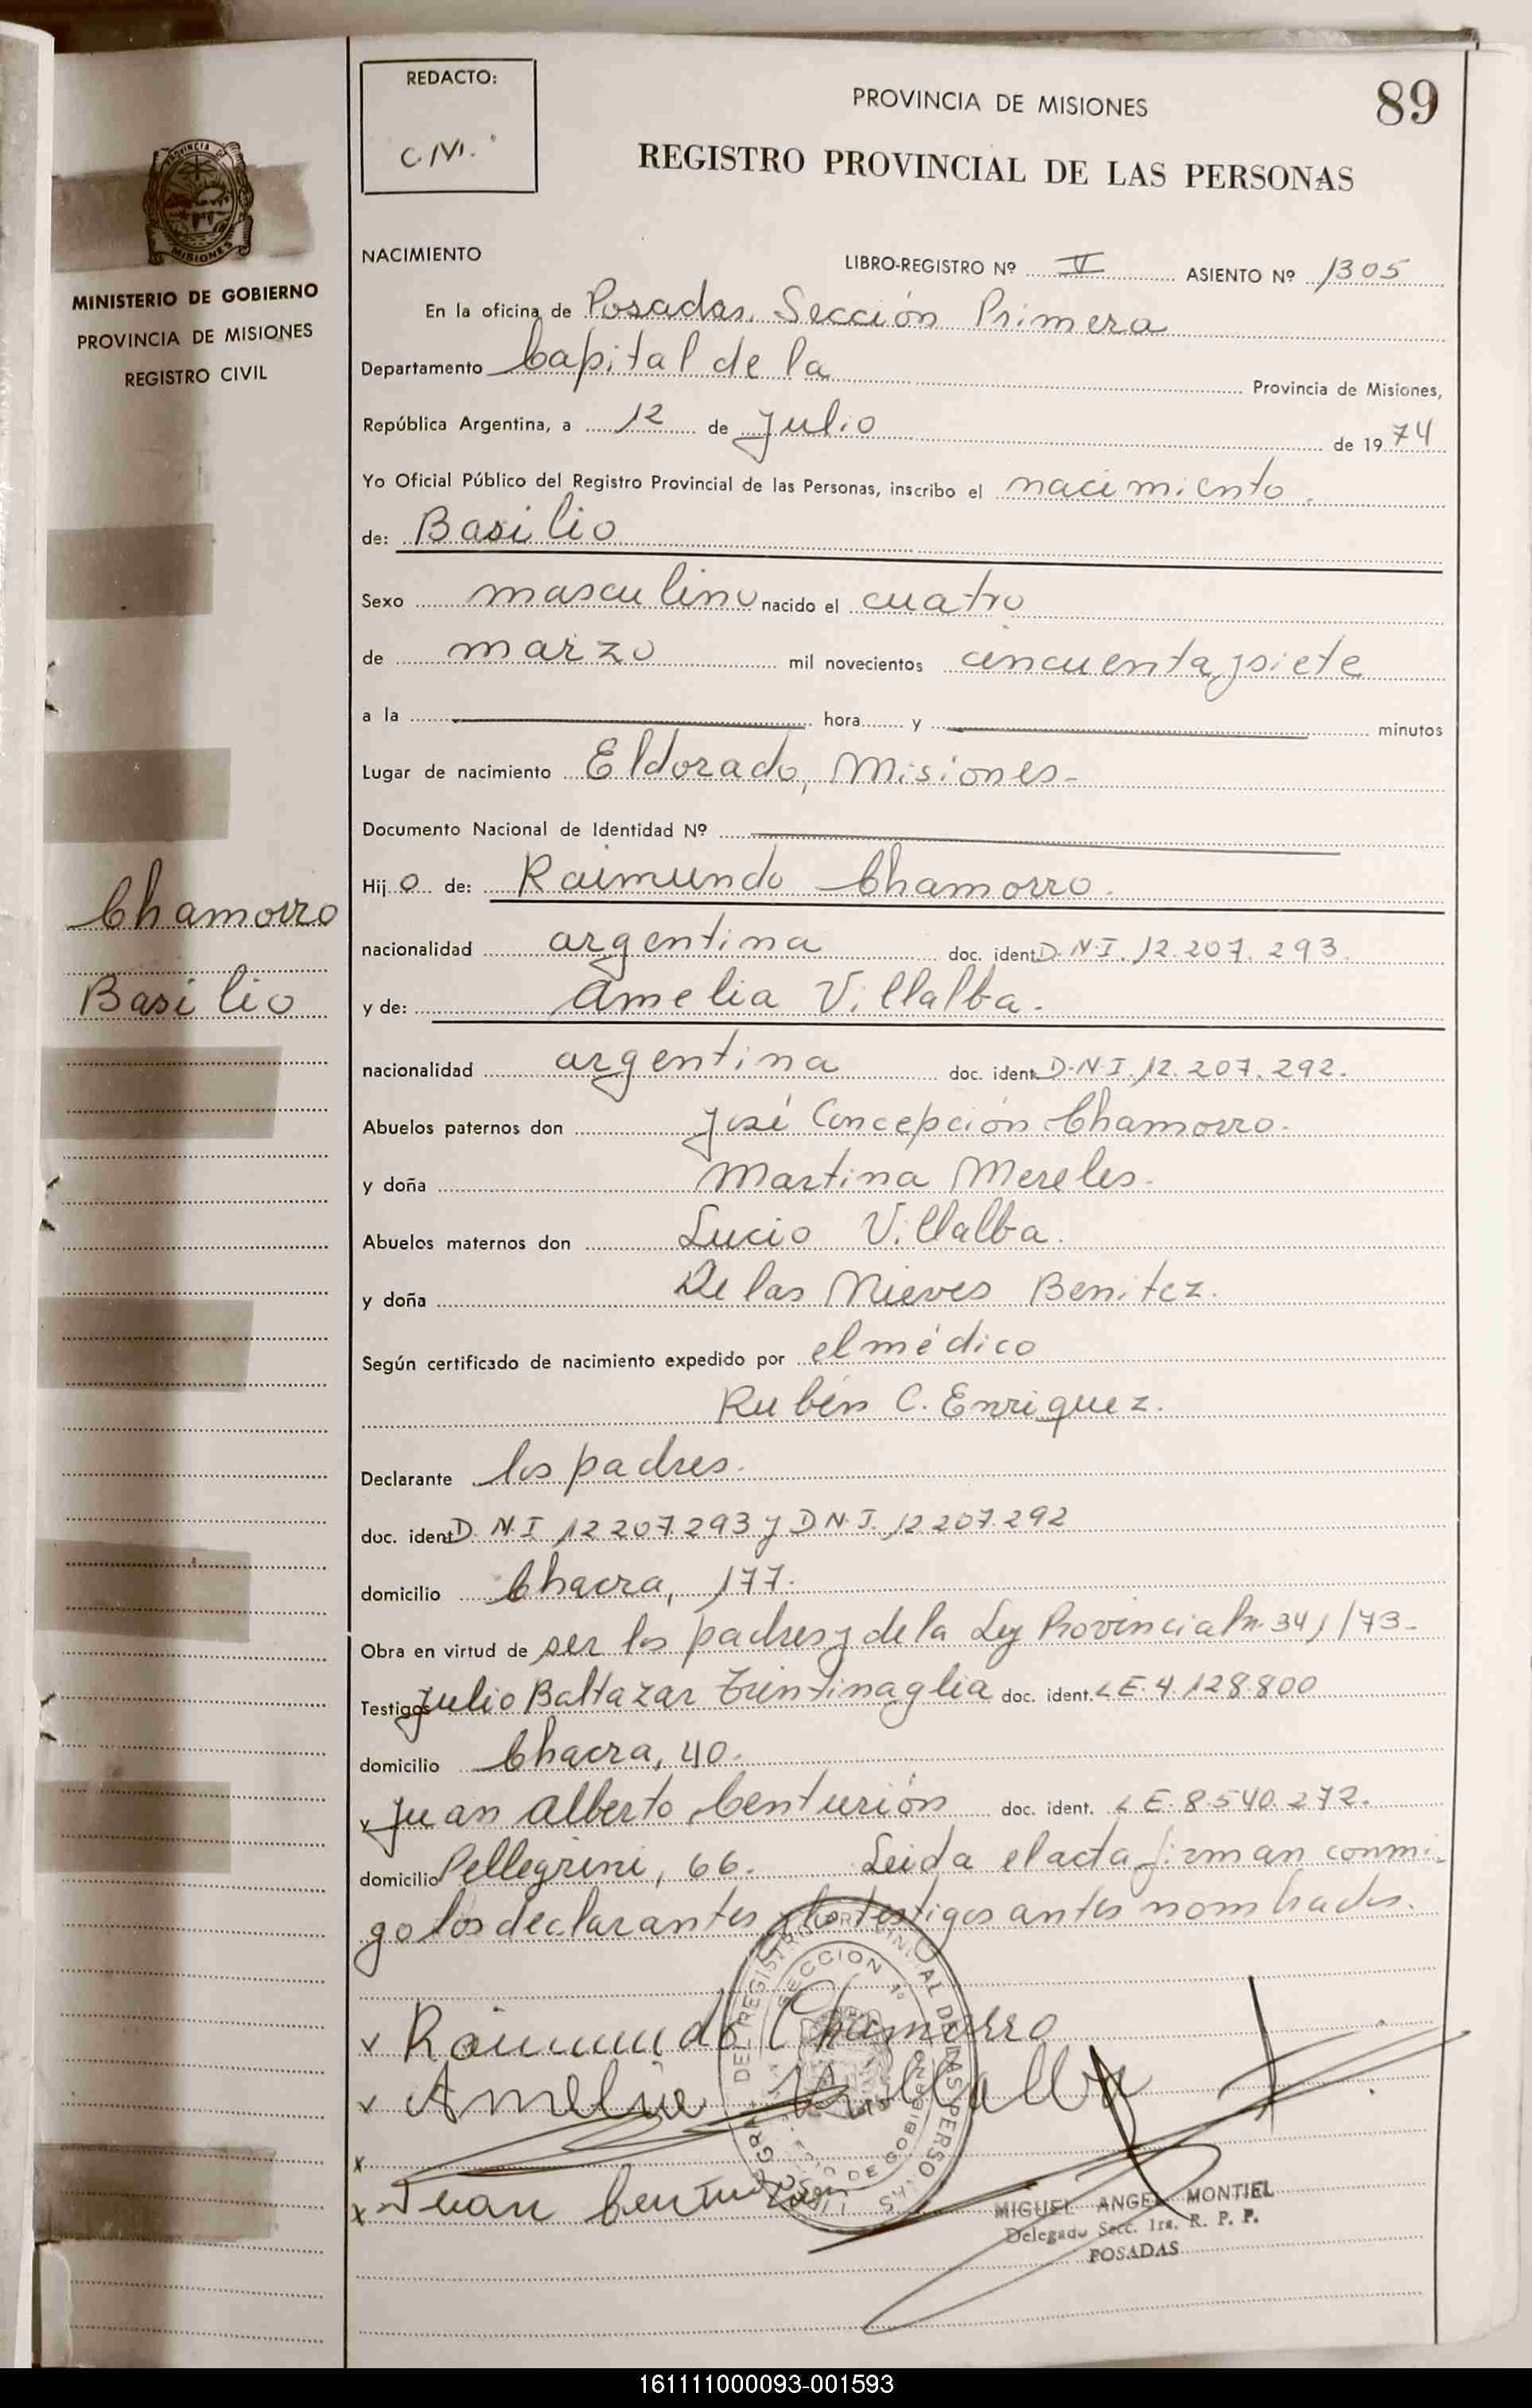 REDACTO:
C.M.
PROVINCIA DE MISIONES
89
REGISTRO PROVINCIAL DE LAS PERSONAS
PROVINCIA DE
MISIONES
MINISTERIO DE GOBIERNO
PROVINCIA DE MISIONES
REGISTRO CIVIL
NACIMIENTO
LIBRO-REGISTRO Nº V ASIENTO Nº 1305
En la oficina de Posadas. Sección Primera
Departamento Capital de la Provincia de Misiones,
República Argentina, a 12 de Julio de 1974
Yo Oficial Público del Registro Provincial de las Personas, inscribo el nacimiento.
de: Basilio
Sexo masculino nacido el cuatro
de marzo mil novecientos cincuenta y siete
a la hora y minutos
Lugar de nacimiento Eldorado, Misiones-
Documento Nacional de Identidad Nº
Chamorro
Basilio
Hijo de: Raimundo Chamorro.
nacionalidad argentina doc. ident D.N.I. 12.207.293.
y de: Amelia Villalba.
nacionalidad argentina doc. ident D.N.I. 12.207.292.
Abuelos paternos don José Concepción Chamorro.
y doña Martina Mereles.
Abuelos maternos don Lucio Villalba.
y doña De las Nieves Benitez.
Según certificado de nacimiento expedido por el médico
Rubén C. Enriquez.
Declarante los padres.
doc. ident D.N.I 12 207.293 y D.N.I. 12 207.292
domicilio Chacra, 177.
Obra en virtud de ser los padres y de la Ley Provincial Nº 341/73-
Testigos Julio Baltazar Trentinaglia doc. ident. L E. 4.128.800
domicilio Chacra, 40.
y Juan Alberto Centurión doc. ident. L E. 8.540.272.
domicilio Pellegrini, 66. Leida el acta firman conmi-
go los declarantes y los testigos antes nombrados.
x Raimundo Chamorro
x Amelia Villalba
x
x Juan Centurión
DEL REGISTRO PROVINCIAL DE LAS PERSONAS
SECCION 1ª
DE GOBIERNO
MIGUEL ANGEL MONTIEL
Delegado Secc. 1ra. R. P. P.
POSADAS
161111000093-001593